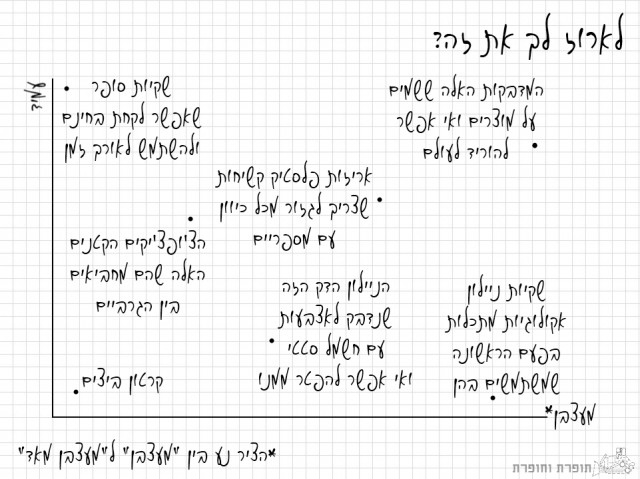 לארוז לך את זה?
עמיד
שקיות סופר
שאפשר לקחת בחינם
ולהשתמש לאורך זמן
המדבקות האלה ששמים
על מוצרים ואי אפשר
להוריד לעולם
אריזות פלסטיק קשיחות
שצריך לגזור מכל כיוון
עם מספריים
הצ'ופצ'יקים הקטנים
האלה שהם מחביאים
בין הגרביים
הניילון הדק הזה
שנדבק לאצבעות
עם חשמל סטטי
ואי אפשר להפטר ממנו
שקיות ניילון
אקולוגיות מתכלות
בפעם הראשונה
שמשתמשים בהן
קרטון ביצים
מעצבן*
*הציר נע בין "מעצבן" ל"מעצבן מאד"
תופרת וחופרת